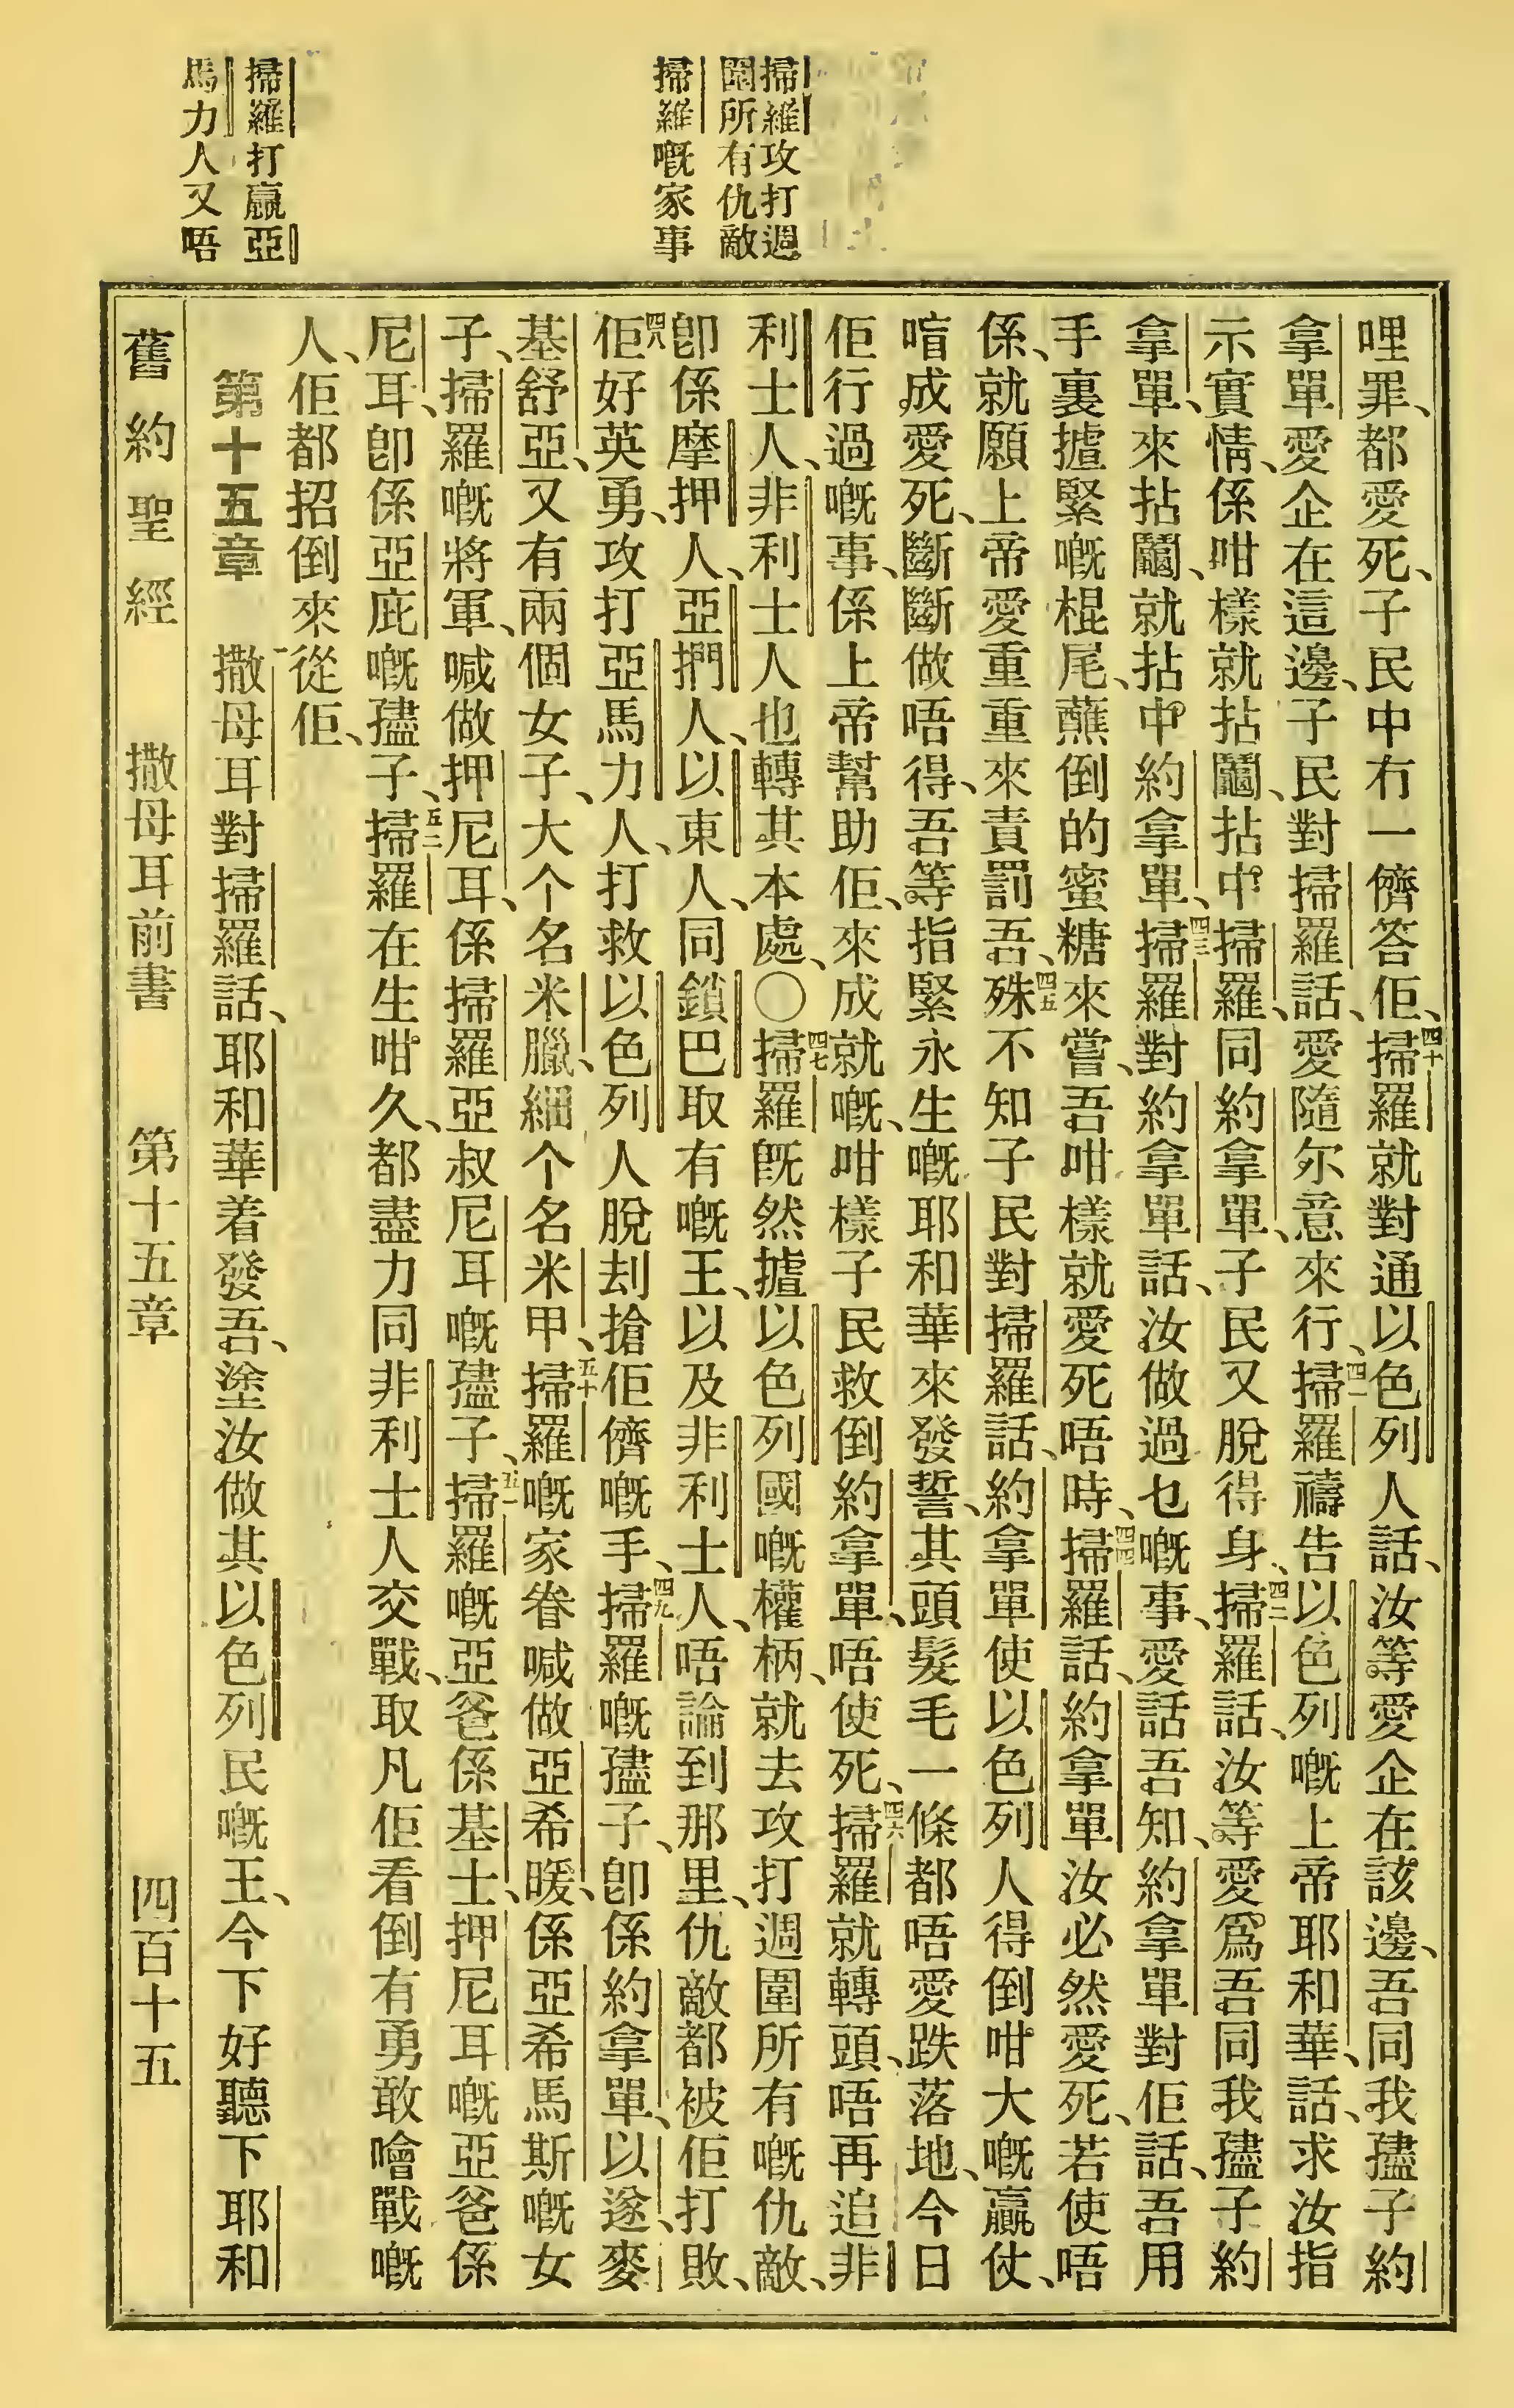 掃羅攻打週
圍所有仇敵
掃羅嘅家事
掃羅打贏亞
馬力人又唔
哩罪、都愛死、子民中冇一儕答佢、四十掃羅就對通以色列人話、汝等愛企在該邊、吾同我𡥧子約
拿單愛企在這邊、子民對掃羅話、愛隨尔意來行、四一掃羅禱告以色列嘅上帝耶和華、話、求汝指
示實情、係咁樣就拈鬮、拈中掃羅、同約拿單、子民又脫得身、四二掃羅話、汝等愛爲吾同我𡥧子約
拿單、來拈鬮、就拈中約拿單、四三掃羅對約拿單話、汝做過乜嘅事、愛話吾知、約拿單對佢話、吾用
手裏揸緊嘅棍尾、蘸倒的蜜糖來嘗、吾咁樣就愛死唔時、四四掃羅話、約拿單汝必然愛死、若使唔
係、就願上帝愛重重來責罰吾、四五殊不知子民對掃羅話、約拿單使以色列人得倒咁大嘅贏仗、
喑成愛死、斷斷做唔得、吾等指緊永生嘅耶和華來發誓、其頭髮毛一條都唔愛跌落地、今日
佢行過嘅事、係上帝幫助佢、來成就嘅、咁樣子民救倒約拿單、唔使死、四六掃羅就轉頭、唔再追非
利士人、非利士人也轉其本處、〇四七掃羅旣然揸以色列國嘅權柄、就去攻打週圍所有嘅仇敵、
卽係摩押人、亞捫人、以東人、同鎖巴取有嘅王、以及非利士人、唔論到那里、仇敵都被佢打敗、
四八佢好英勇、攻打亞馬力人、打救以色列人脫刦搶佢儕嘅手、四九掃羅嘅𡥧子、卽係約拿單、以遂、麥
基舒亞、又有兩個女子、大个名米臘、細个名米甲、五十掃羅嘅家眷喊做亞希暖、係亞希馬斯嘅女
子、掃羅嘅將軍、喊做押尼耳、係掃羅亞叔尼耳嘅𡥧子、五一掃羅嘅亞爸係基士、押尼耳嘅亞爸係
尼耳、卽係亞庇嘅𡥧子、五二掃羅在生咁久、都盡力同非利士人交戰、取凡佢看倒有勇敢噲戰嘅
人、佢都招倒來從佢、
第十五章 一撒母耳對掃羅話、耶和華着發吾、塗汝做其以色列民嘅王、今下好聽下耶和
舊約聖經 撒母耳前書 第十五章 四百十五